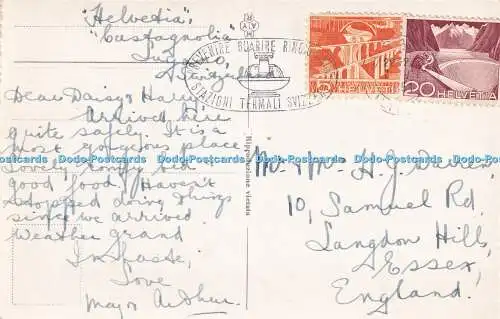 "Helvetia"
"Castagnolia"
Lugano,
Switzerland
Dear Daisy & Harry
Arrived here
quite safely. It is a
most gorgeous place
Lovely comfy bed
good food. Haven't
stopped doing things
since we arrived
Weather grand
In haste,
Love
Arthur.
PREVENIRE GUARIRE
STAZIONI TERMALI SVIZZERE
HELVETIA
20 HELVETIA
Riproduzione vietata
Mr. & Mrs. H. J. Warren,
10, Samuel Rd,
Langdon Hills,
Essex,
England.
Dodo-Postcards Dodo-Postcards Dodo-Postcards Dodo-Postcards